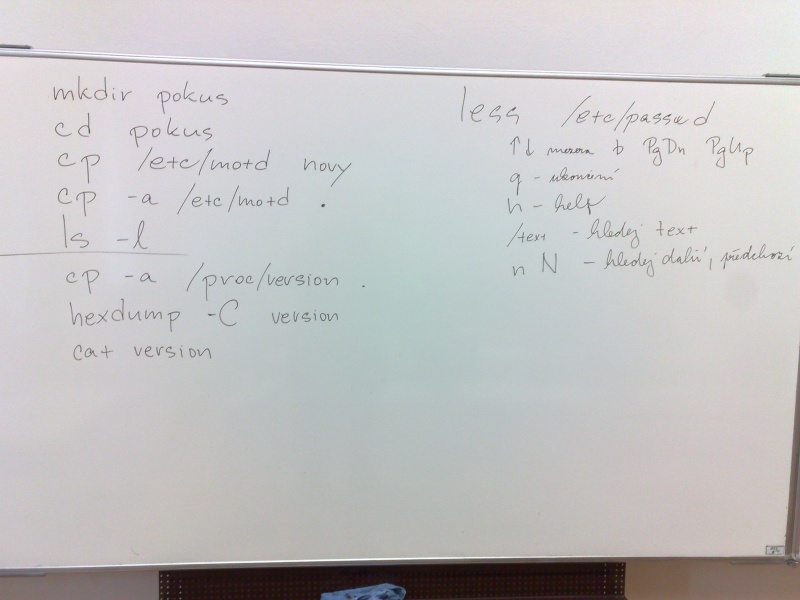 mkdir pokus
cd pokus
cp /etc/motd novy
cp -a /etc/motd .
ls -l
cp -a /proc/version .
hexdump -C version
cat version
less /etc/passwd
↑↓ mezera b PgDn PgUp
q - ukončení
h - help
/text - hledej text
n N - hledej další, předchozí